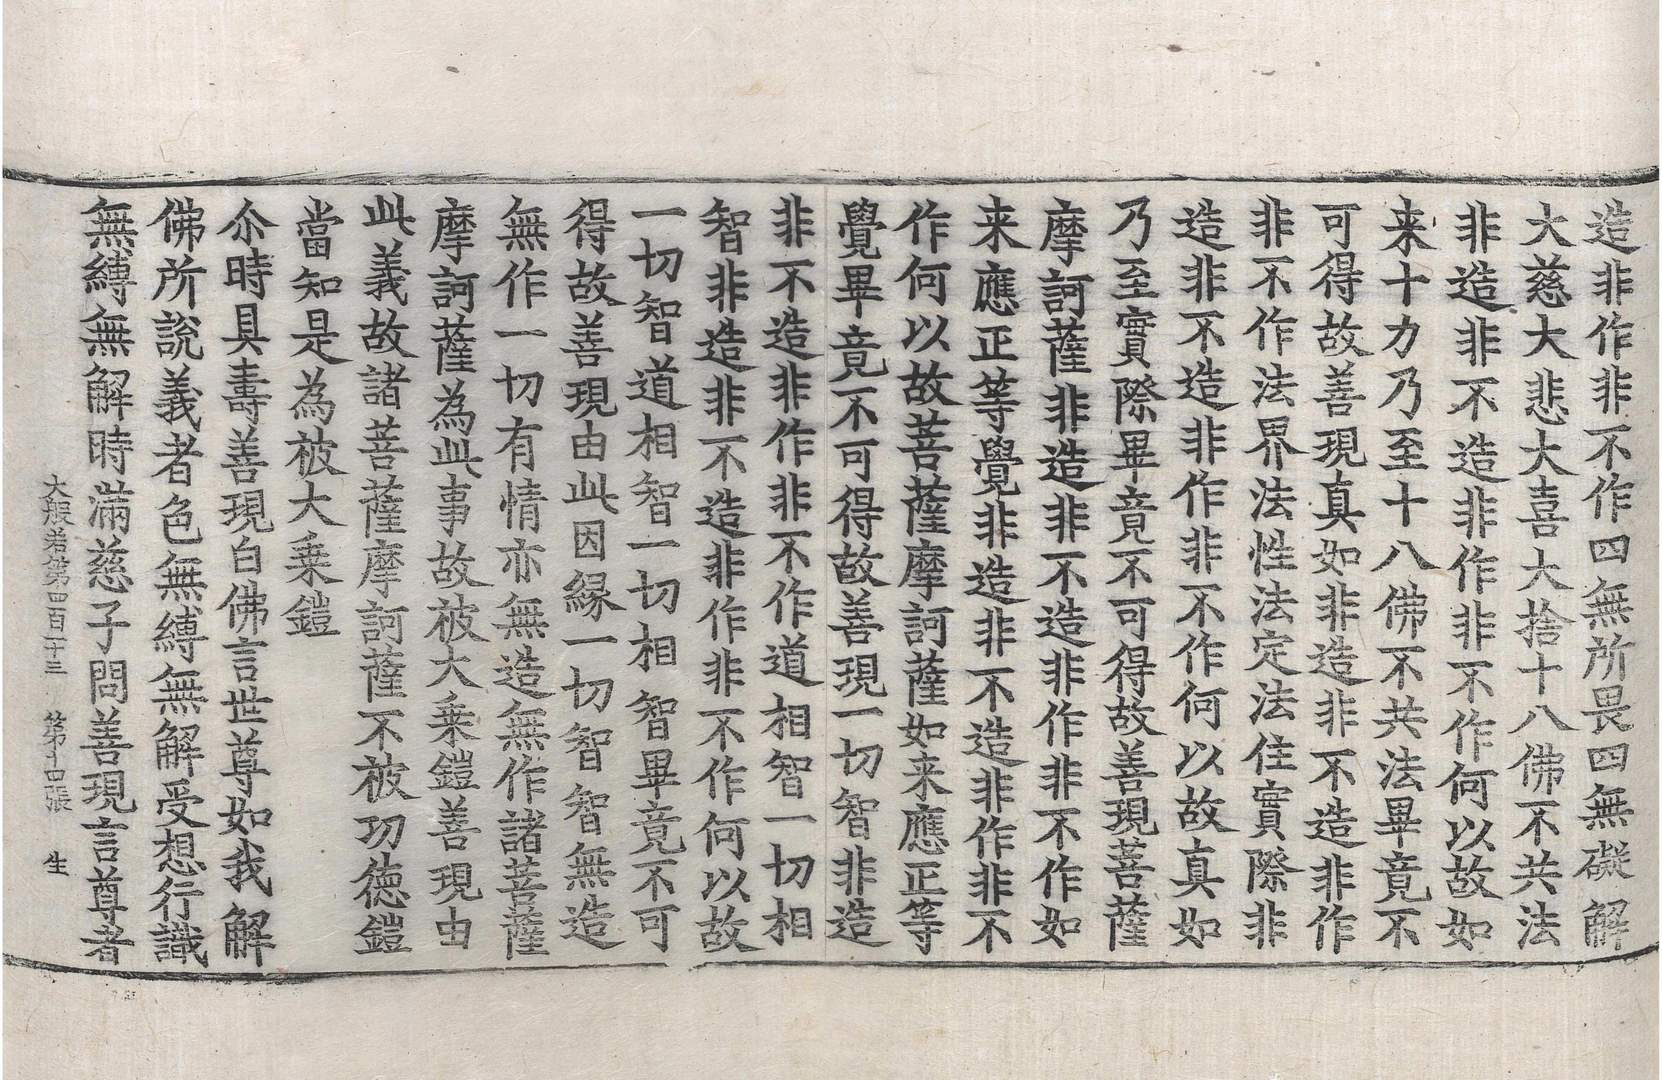 造非作非不作四無所畏四無礙解
大慈大悲大喜大捨十八佛不共法
非造非不造非作非不作何以故如
来十力乃至十八佛不共法畢竟不
可得故善現真如非造非不造非作
非不作法界法性法定法住實際非
造非不造非作非不作何以故真如
乃至實際畢竟不可得故善現菩薩
摩訶薩非造非不造非作非不作如
来應正等覺非造非不造非作非不
作何以故菩薩摩訶薩如来應正等
覺畢竟不可得故善現一切智非造
非不造非作非不作道相智一切相
智非造非不造非作非不作何以故
一切智道相智一切相智畢竟不可
得故善現由此因緣一切智智無造
無作一切有情亦無造無作諸菩薩
摩訶薩為此事故被大乗鎧善現由
此義故諸菩薩摩訶薩不被功德鎧
當知是為被大乗鎧
尒時具壽善現白佛言世尊如我解
佛所說義者色無縛無解受想行識
無縛無解時滿慈子問善現言尊者
大般若第四百一十三 第十四張 生